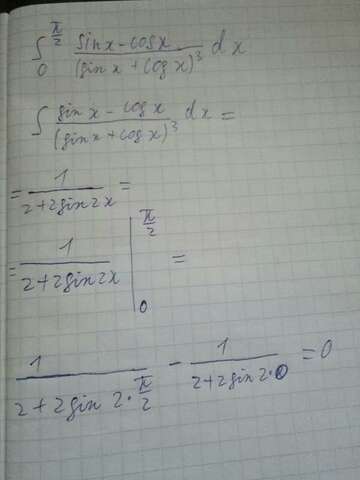 ∫₀^(π/2) (sin x - cos x)/(sin x + cos x)³ dx
∫ (sin x - cos x)/(sin x + cos x)³ dx =
= 1/(2+2sin2x) =
= 1/(2+2sin2x) |₀^(π/2) =
1/(2+2sin 2·π/2) - 1/(2+2sin 2·0) = 0